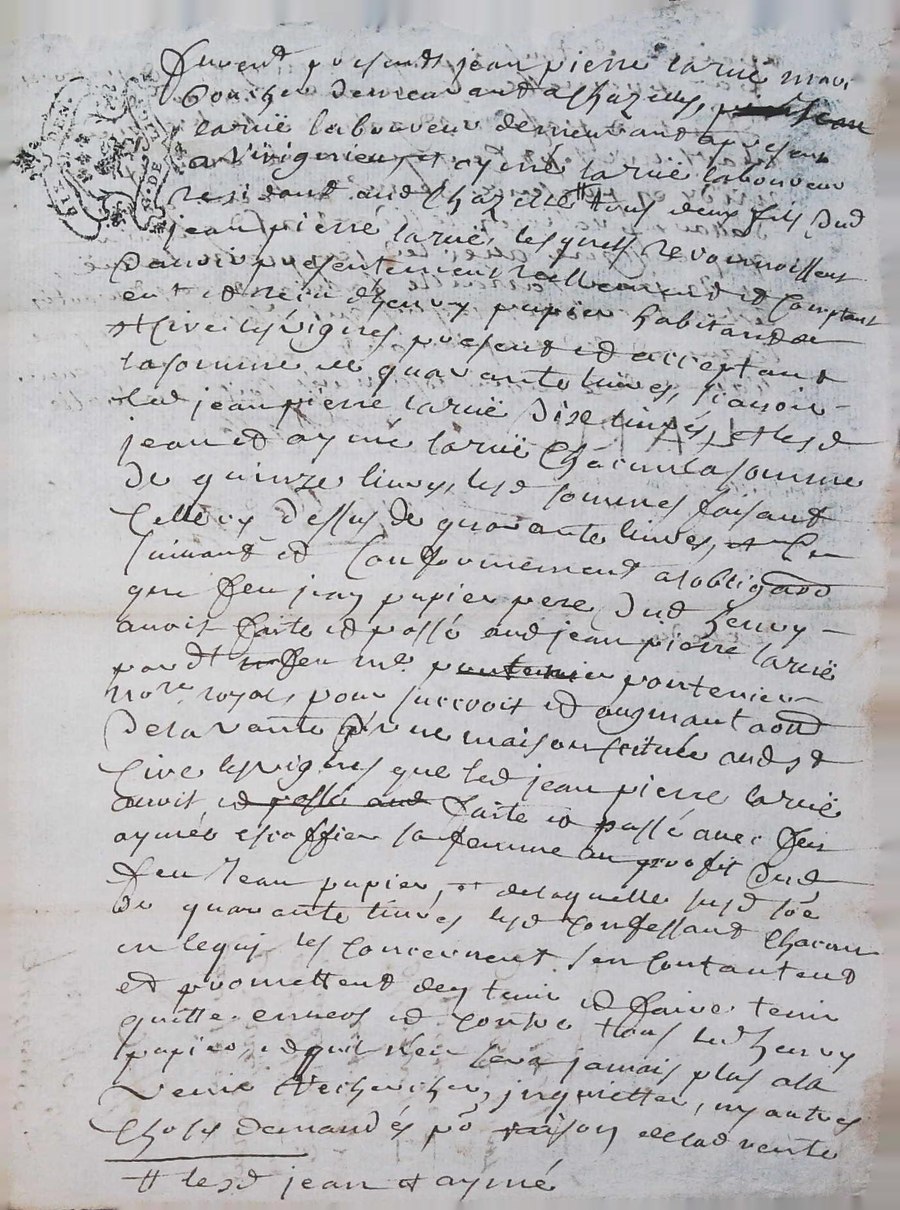 furent presents jean pierre larüe mar.
boucher demeurant a Chazelles, jean
larüe laboureur demeurant a present
a et aymé larüe laboureur
residant aud Chazelles # tous deux fils dud
jean pierre larüe, lesquels reconnoissent
d'avoir presentement reellement et Comptant
eut et receu d'henry papier habitant de
Civelesvignes present et acceptant
la somme de quarante livres, sçavoir
led jean pierre larüe dixe livres, et lesd
jean et aymé larüe Chacun la somme
de quinze livres, lesd sommes faisant
Celle cy dessus de quarante livres, et Ce
suivant et Conformement a lobligaon
que feu jean papier pere dud henry
avoit faite et passé aud jean pierre larüe
pardt feu me pontenier
nore royal, pour surcroit et augmantaon
de la vante d'une maison scituée aud
Civelesvignes que led jean pierre larüe
avoit et passé aud faite et passé avec feu
aymée escoffier sa femme au proffit dud
feu Jean papier, et de laquelle susd soe
de quarante livres lesd Confessant Chacun
en lequi les concernent s'en Contantent
et promettent den tenir et faire tenir
quitte envers et contre tous led henry
papier, et qu'il n'en sera jamais plus
venu rechercher, jnquietter, ny autres
choses demandés pr raison de lad vente
# lesd jean et aymé